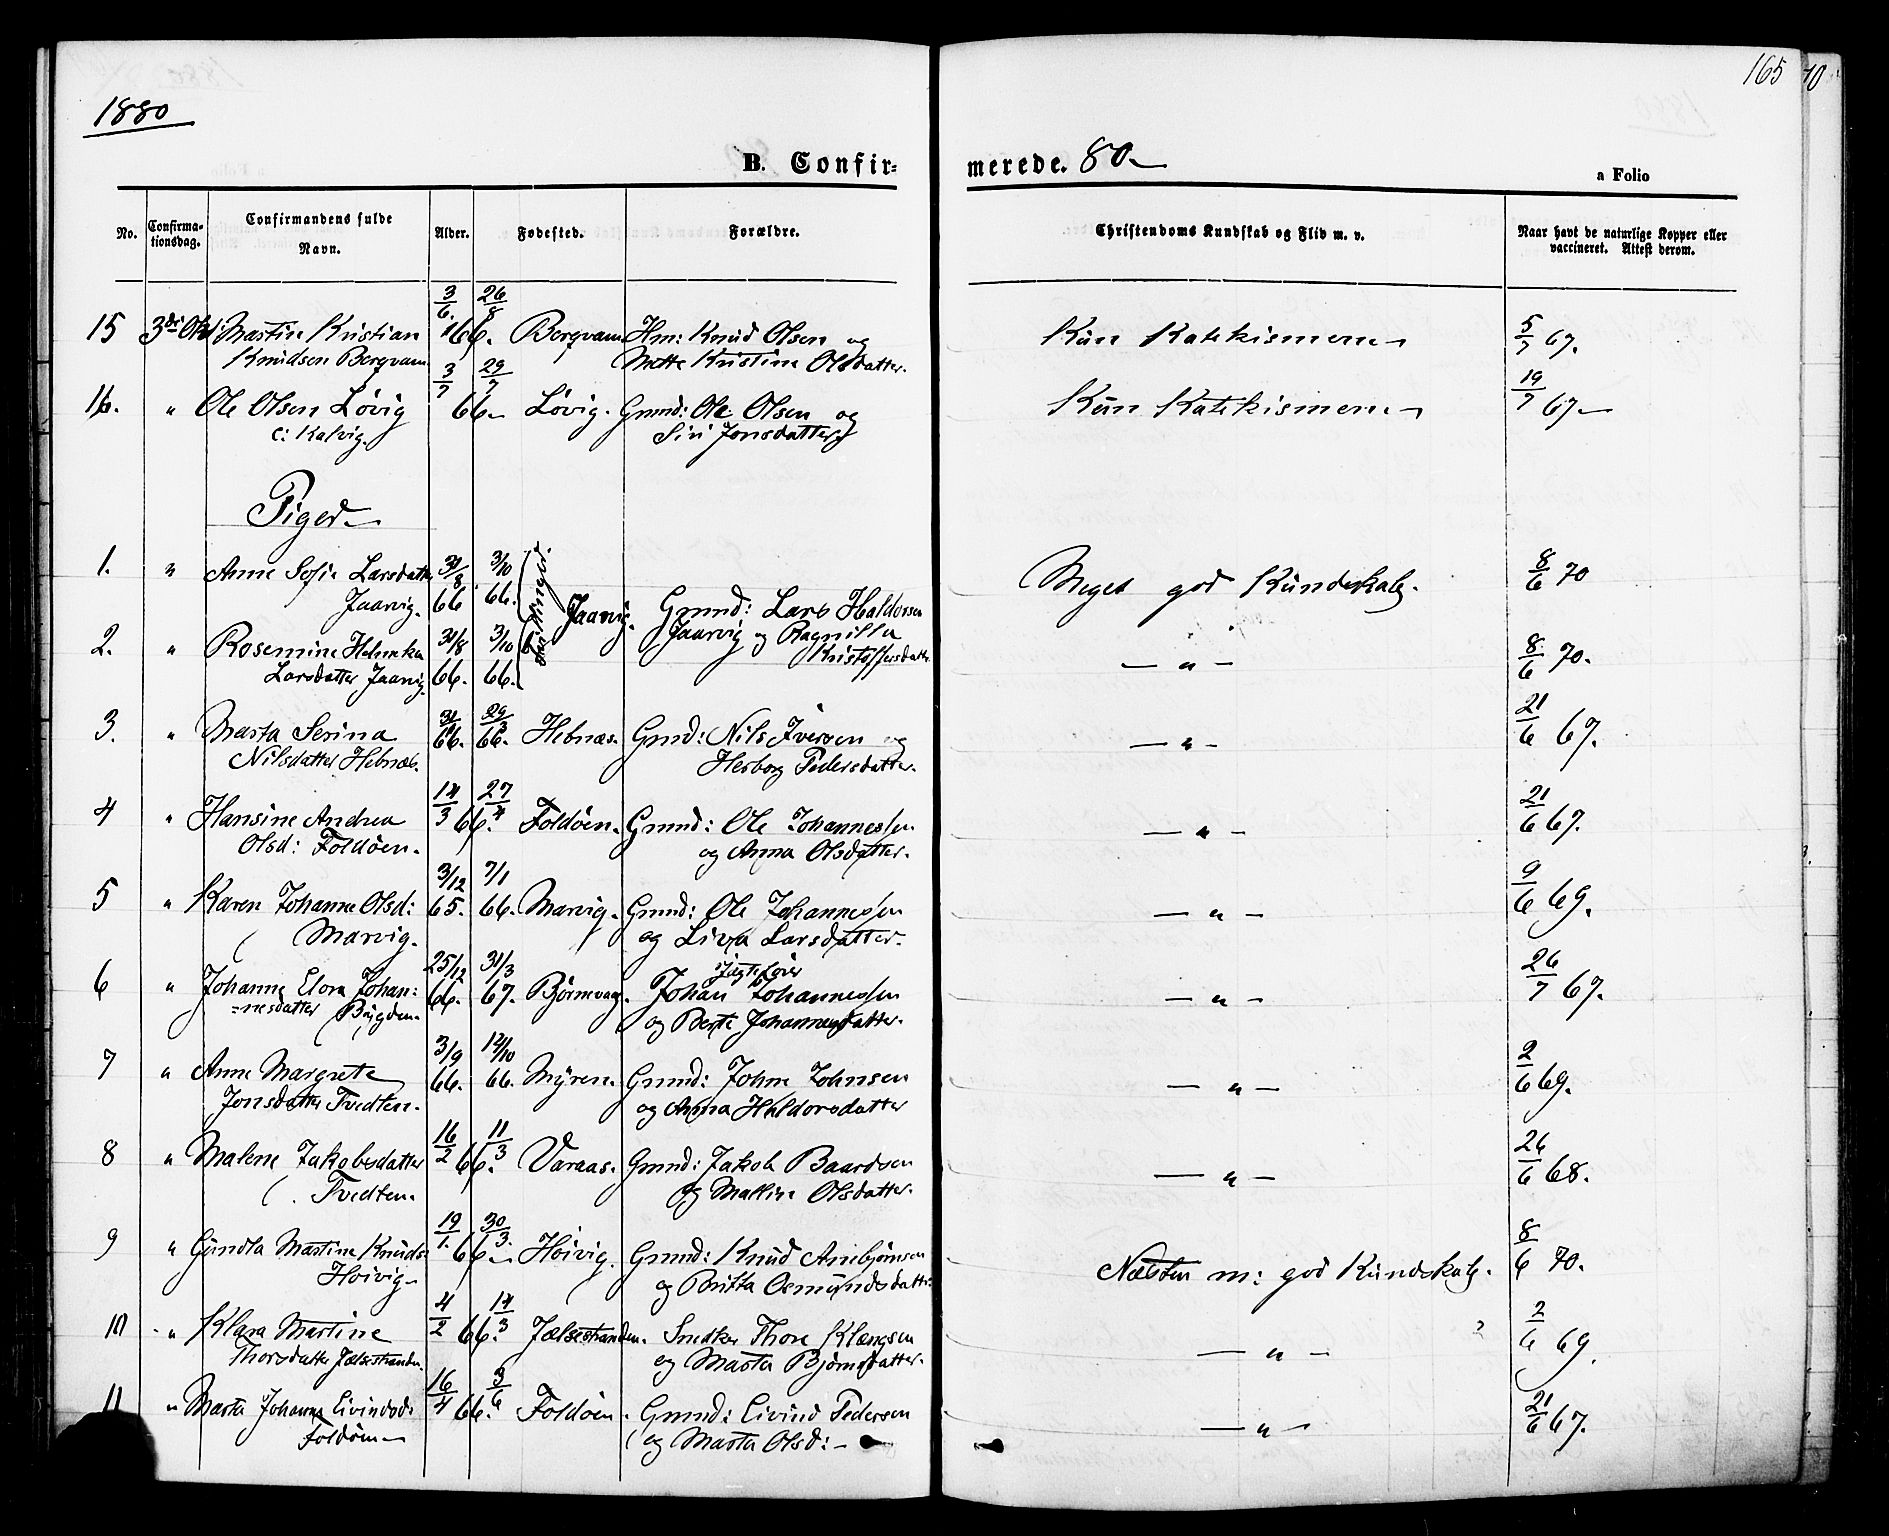 165
1880
B. Confirmerede. 80
a Folio
No. Confirmationsdag. Confirmandens fulde Navn. Alder. Fødested. Forældre. Christendoms Kundskab og Flid m. v. Naar havt de naturlige Kopper eller vaccineret. Attest derom.
15 3di Okt: Martin Kristian 3/6. 26/8 66. Bergvam Hm: Knud Olsen og Kun Katekismen 5/7 67.
Knudsen Bergvam Mette Kristine Olsdatter.
16. " Ole Olsen Løvig 3/7 29/7 66 Løvig. Grmd: Ole Olsen og Kun Katekismen 19/7 67
c: Kalvig. Siri Jonsdatter
Piger
1. " Anne Sofie Larsdatter 31/8 66 3/10 66. Jaarvig. Grmd: Lars Haldorsen Meget god Kundskab. 8/6 70
Jaarvig. Jaarvig og Ragnilla
2. " Rosemine Helmika 31/8 66. 3/10 66. Kristoffersdatt. — " — 8/6 70.
Larsdatter Jaarvig
3. " Marta Serina 66. 29/3 66. Hebnæs. Grmd: Nils Iversen og — " — 21/6 67.
Nilsdatter Hebnæs. Herborg Pedersdatter.
4 " Hansine Andrea 14/3 27/4 66. Foldøen. Grmd: Ole Johannessen — " — 21/6 67.
Olsd: Foldøen. og Anna Olsdatter.
5 " Karen Johanne Olsd: 3/12 65. 7/1 66. Marvig. Grmd: Ole Johannessen — " — 9/6 69.
Marvig. og Liva Larsdatter.
6 " Johanne Elora Johan= 25/12 66. 31/3 67. Børnevag. Johan Johannessen — " — 26/7 67.
=nesdatter Bygden. og Berte Johannesdatter.
7 " Anne Margrete 3/9 66. 12/10 66. Myren. Grmd: John Johnsen — " — 2/6 69.
Jonsdatter Tvedten. og Anna Haldorsdatter
8 " Malene Jakobsdatter 16/2 11/3 66. Varaas. Grmd: Jakob Baardsen — " — 26/6 68.
Tvedten. og Malline Olsdatter.
9 " Gundla Martine Knuds. 19/1. 30/3. 66 Høivig. Grmd: Knud Arnbjørnsen Næsten m: god Kundskab. 8/6 70.
Høivig og Britta Osmundsdatter
10 " Klara Martine 4/2 14/3 66. Jælsestranden. Snedker Thore Klængsen — " — 2/6 69.
Thorsdatter Jælsestranden. og Marta Bjørnsdatter.
11 " Marta Johanna Eivindsd: 16/4 3/6 66. Foldøen. Grmd: Eivind Pedersen — " — 21/6 67.
Foldøen og Marta Olsd: